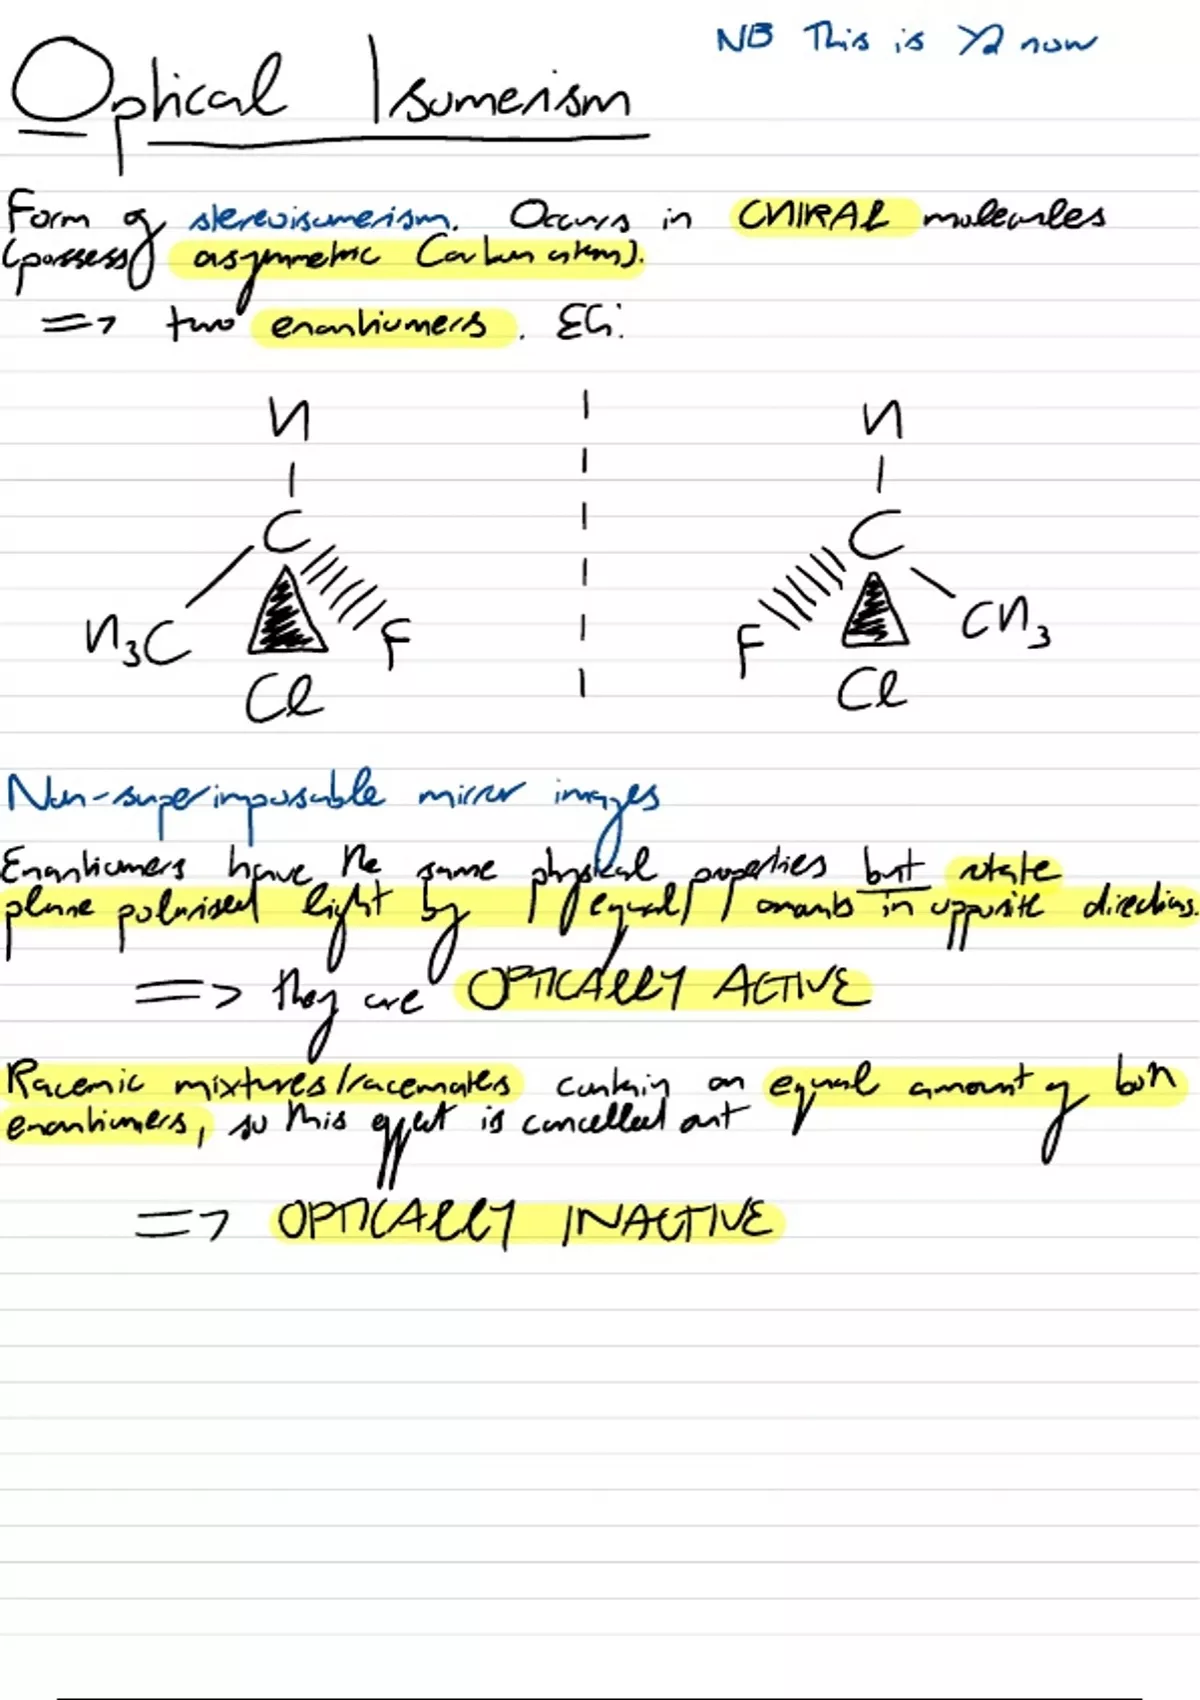 NB This is Y2 now
Optical Isomerism
Form of stereoisomerism. Occurs in CHIRAL molecules
(possess asymmetric Carbon atom).
=> two enantiomers. EG:
H H
C C
H3C F F CH3
Cl Cl
Non-superimposable mirror images
Enantiomers have the same physical properties but rotate
plane polarised light by equal amounts in opposite directions.
=> they are OPTICALLY ACTIVE
Racemic mixtures/racemates contain an equal amount of both
enantiomers, so this effect is cancelled out
=> OPTICALLY INACTIVE